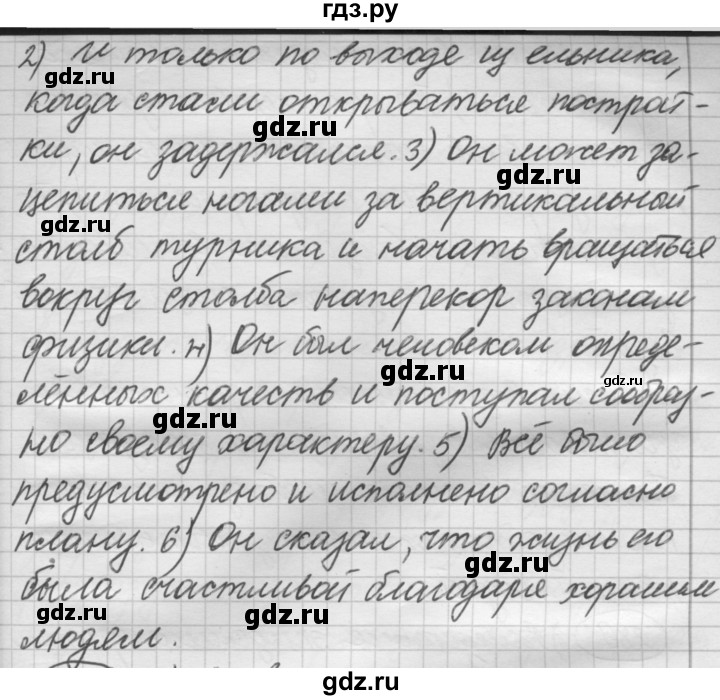 гдз.ру
2) И только по выходе из ельника,
gdz.ru
когда стали открываться построй-
gdz.ru
ки, он задержался. 3) Он может за-
gdz.ru
цепиться ногами за вертикальный
gdz.ru
столб турника и начать вращаться
gdz.ru
вокруг столба наперекор законам
физики. 4) Он был человеком опреде-
gdz.ru
лённых качеств и поступал сообраз-
gdz.ru
gdz.ru
но своему характеру. 5) Всё было
предусмотрено и исполнено согласно
плану. 6) Он сказал, что жизнь его
gdz.ru
была счастливой благодаря хорошим
gdz.ru
gdz.ru
людям.
gdz.ru